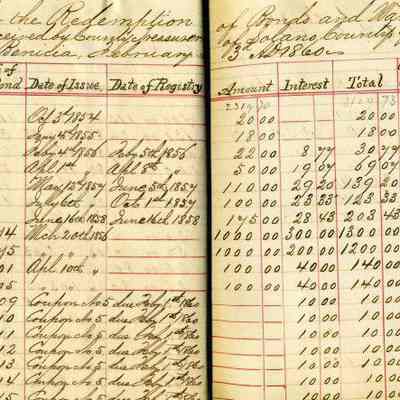 the Redemption of Bonds and
ceived by County Treasurer of Solano County
Benicia, February 3d AD 1860
of
ond Date of Issue Date of Registry Amount Interest Total
Oct 3d 1854 20 00 20 00
1855 18 00 18 00
Feby 4th 1856 Feby 5th 1856 22 00 8 77 30 77
Apl 1st " Apl 8th " 50 00 19 07 69 07
May 12th 1857 June 5th 1857 110 00 29 20 139 20
July 6th " Oct 1st 1857 100 00 23 33 123 33
June 16th 1858 June 16th 1858 175 00 28 43 203 43
14 Mch 20th 1856 1000 00 300 00 1300 00
15 " " 1000 00 200 00 1200 00
01 Apl 10th " 100 00 40 00 140 00
05 " " 100 00 40 00 140 00
09 Coupon No 5 due Feby 1st 1860 10 00 10 00
10 Coupon No 5 due Feby 1st 1860 10 00 10 00
11 Coupon No 5 due Feby 1st 1860 10 00 10 00
12 Coupon No 5 due Feby 1st 1860 10 00 10 00
13 Coupon No 5 due Feby 1st 1860 10 00 10 00
14 Coupon No 5 due Feby 1st 1860 10 00 10 00
15 Coupon No 5 due Feby 1st 1860 10 00 10 00